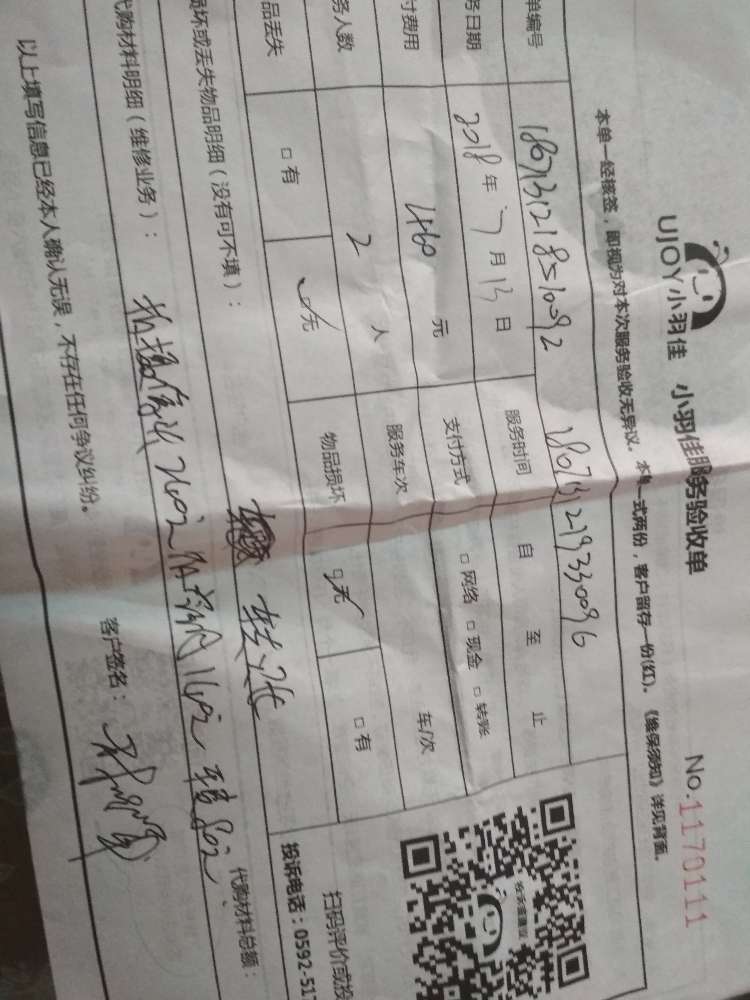 UJOY小羽佳 小羽佳服务验收单 No.1170111
本单一经核签,即视为对本次服务验收无异议。本单一式两份,客户留存一份(红)。《维保须知》详见背面。
单编号 1807131218510092 180713219330096
务日期 2018年7月13日 服务时间 自 至 止
付费用 460元 支付方式 □网络 □现金 □转账
务人数 2人 服务车次 车/次
品丢失 □有 √无 物品损坏 □无 □有
损坏或丢失物品明细(没有可不填):
代购材料明细(维修业务): 代购材料总额:
以上填写信息已经本人确认无误,不存在任何争议纠纷。 客户签名:
扫码评价或投
投诉电话:0592-51